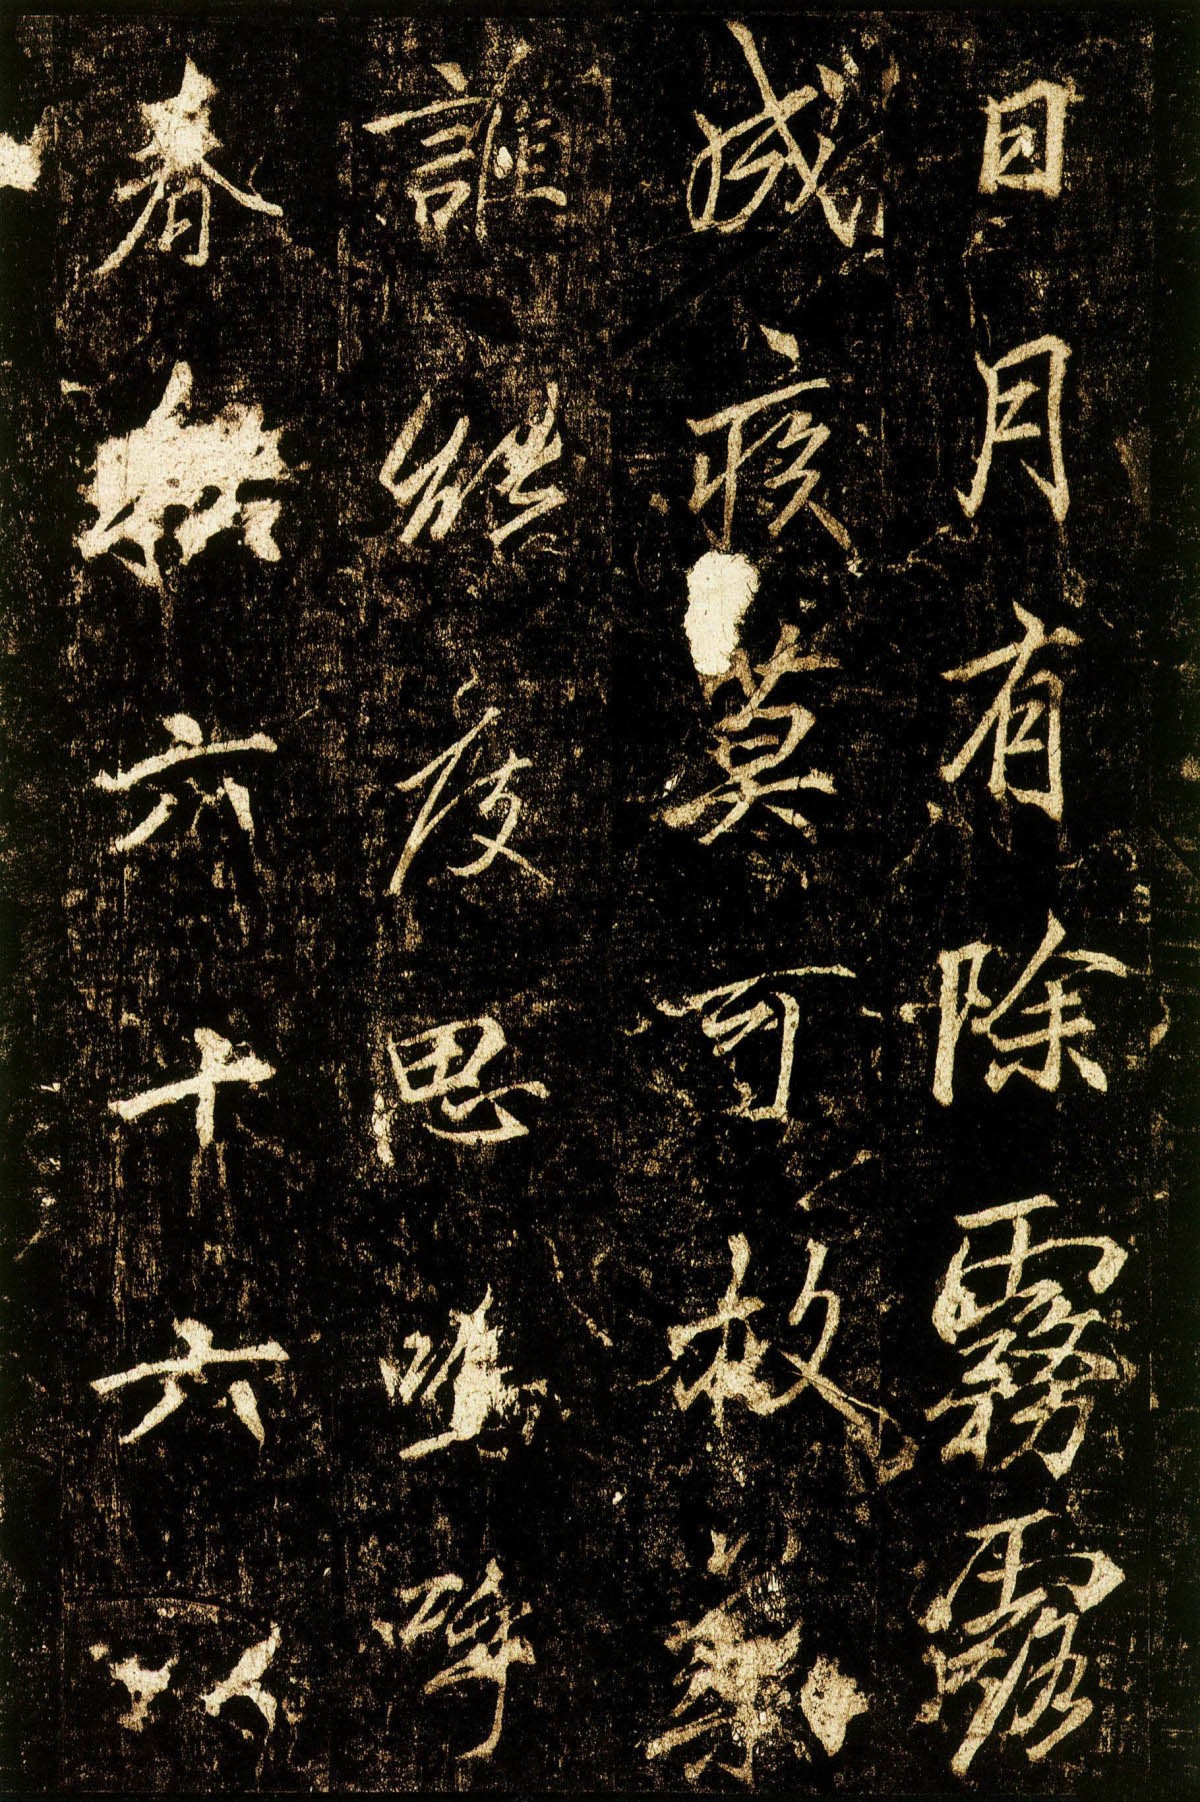 日月有除霧露
成疾莫可救藥
誰能度思嗚呼
春秋六十六以